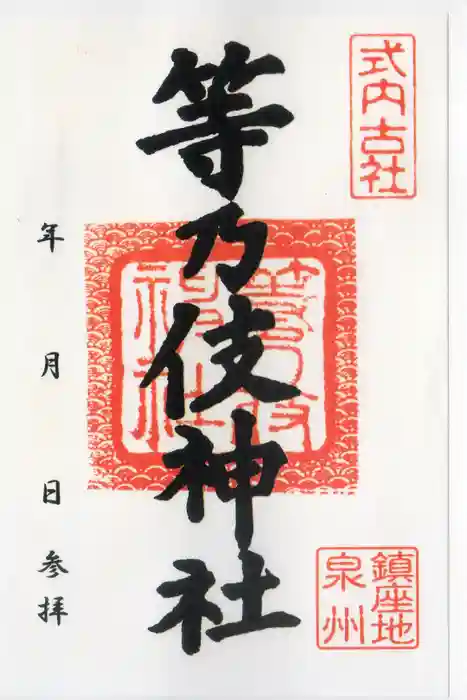 式内古社
等乃伎神社
等乃伎
神社
鎮座地
泉州
年 月 日 参拝